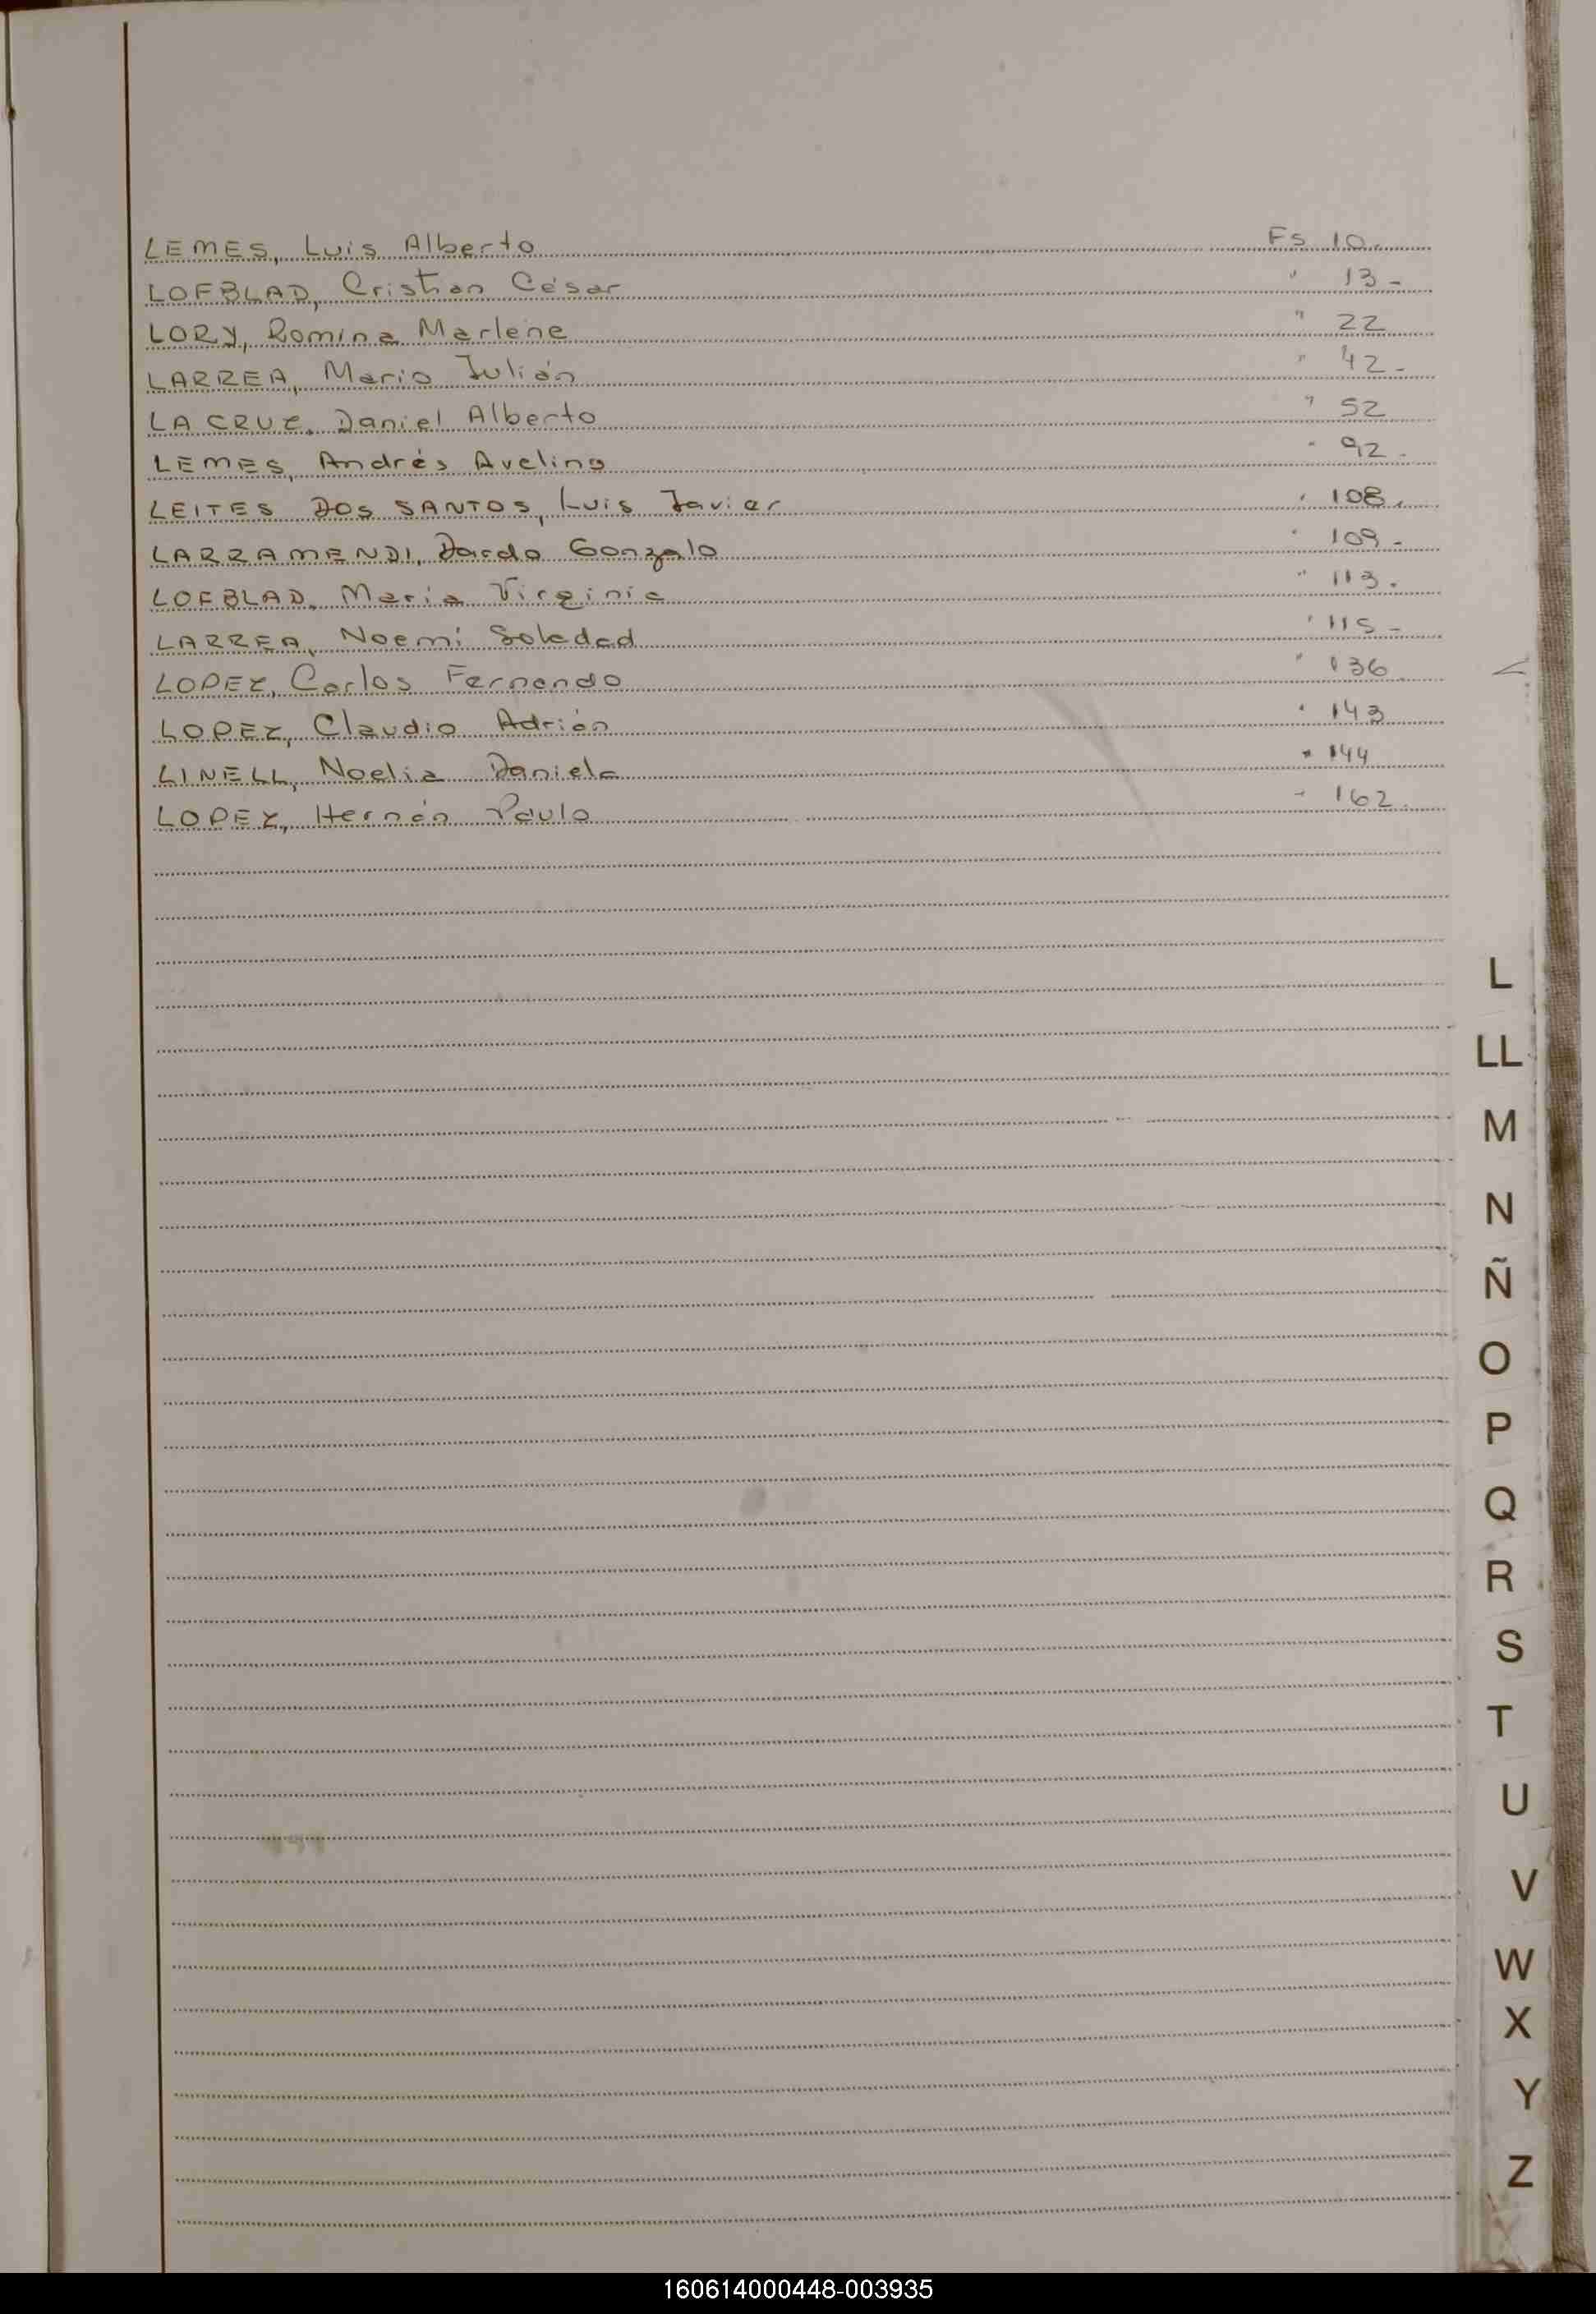 LEMES, Luis Alberto Fs 10.
LOFBLAD, Cristian César " 13-
LORY, Romina Marlene " 22
LARREA, Mario Julián " 42-
LA CRUZ, Daniel Alberto " 52
LEMES, Andrés Avelino " 92.
LEITES DOS SANTOS, Luis Javier " 108.
LARRAMENDI, Dardo Gonzalo " 109-
LOFBLAD, María Virginia " 113.
LARREA, Noemí Soledad " 115-
LOPEZ, Carlos Fernando " 136
LOPEZ, Claudio Adrián " 143
LINELL, Noelia Daniela " 144
LOPEZ, Hernán Paulo " 162.
L
LL
M
N
Ñ
O
P
Q
R
S
T
U
V
W
X
Y
Z
160614000448-003935